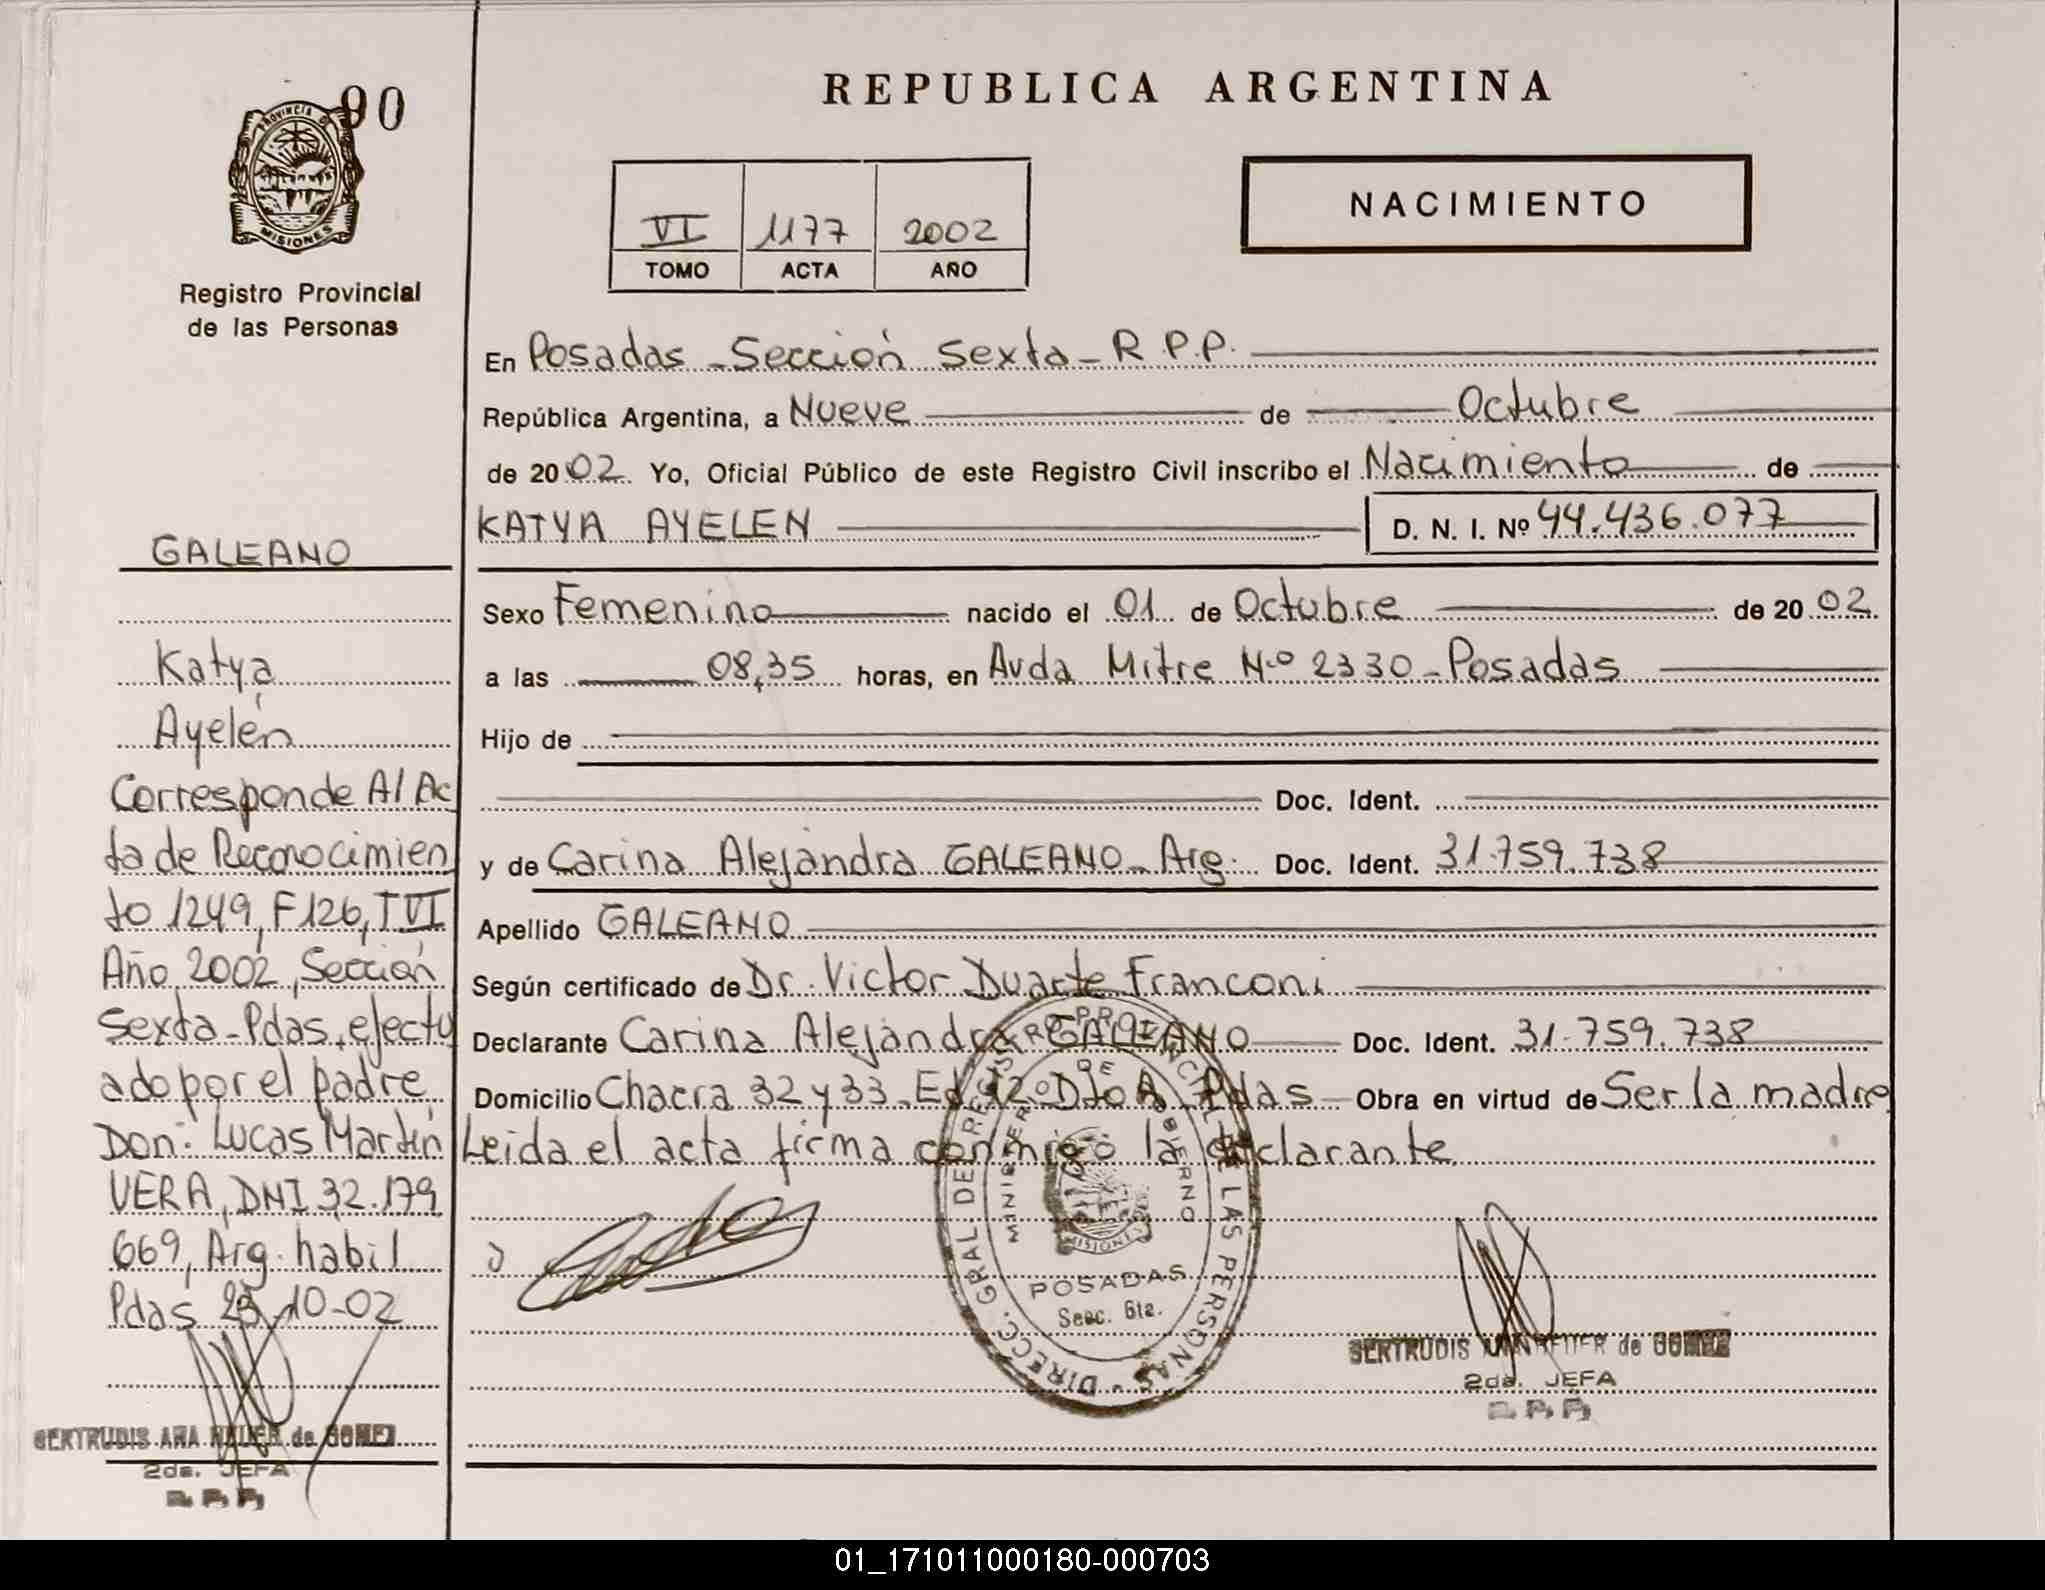 90
PROVINCIA DE
MISIONES
Registro Provincial
de las Personas
REPUBLICA ARGENTINA
VI 1177 2002
TOMO ACTA AÑO
NACIMIENTO
En Posadas - Sección Sexta - R.P.P.
República Argentina, a Nueve de Octubre
de 2002 Yo, Oficial Público de este Registro Civil inscribo el Nacimiento de
KATYA AYELEN D. N. I. Nº 44.436.077
Sexo Femenino nacido el 01 de Octubre de 2002
a las 08,35 horas, en Avda Mitre N.º 2330 - Posadas
Hijo de
Doc. Ident.
y de Carina Alejandra GALEANO - Arg. Doc. Ident. 31.759.738
Apellido GALEANO
Según certificado de Dr. Victor Duarte Franconi
Declarante Carina Alejandra GALEANO Doc. Ident. 31.759.738
Domicilio Chacra 32 y 33 - Ed. 12 - Pdas - Obra en virtud de Ser la madre
Leida el acta firma conmigo la declarante
GALEANO
Katya
Ayelén
Corresponde Al Ac
ta de Reconocimien
to 1249, F 126, T VI
Año 2002, Sección
Sexta - Pdas, efectu
ado por el padre
Don: Lucas Martin
VERA, DNI 32.179
669, Arg. habil
Pdas 23-10-02
GERTRUDIS de GOMEZ
2da. JEFA
R. P. P.
DIRECC. GRAL DE REGISTRO PROVINCIAL DE LAS PERSONAS
MINISTERIO DE GOBIERNO
MISIONES
POSADAS
Secc. 6ta.
GERTRUDIS de GOMEZ
2da. JEFA
R. P. P.
01_171011000180-000703